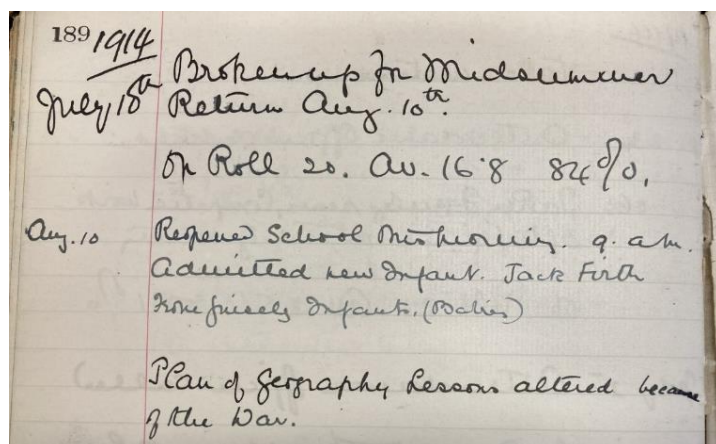 189 1914
Broken up for Midsummer
July 18th Return Aug. 10th.
On Roll 20. Av. 16.8 84%.
Aug. 10 Reopened School this morning. 9. a.m.
Admitted new Infant. Jack Firth
from Infants. (Babies)
Plan of Geography Lessons altered because
of the War.